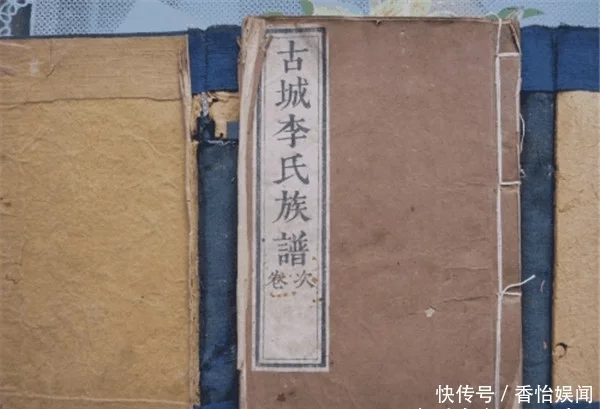 古城李氏族譜
卷次
快传号／香怡娱闻